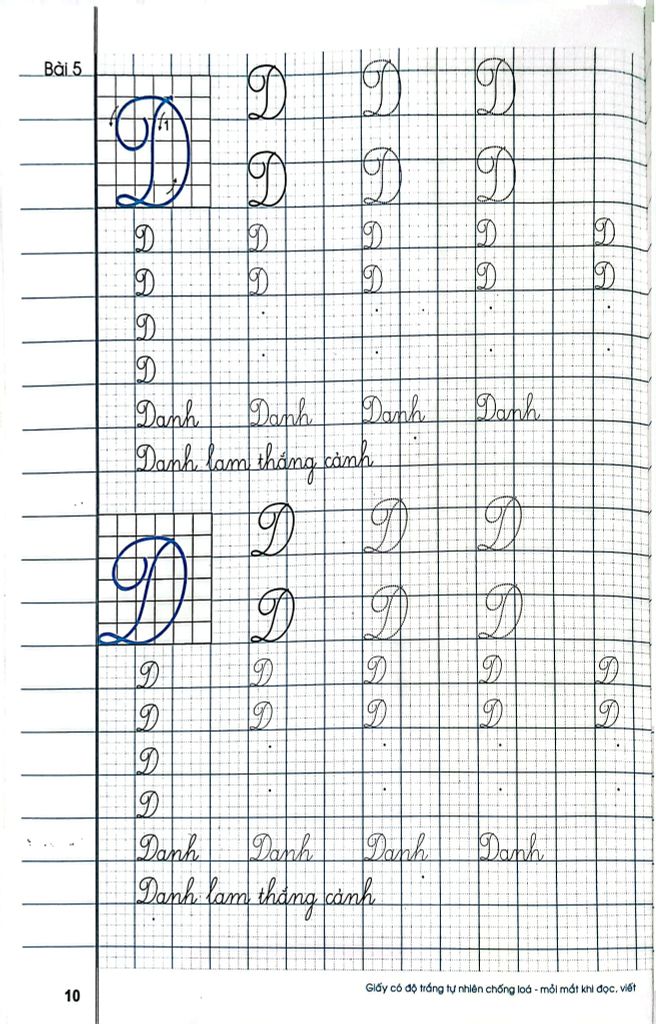 Bài 5
D 1 D D D
D D D
D D D D D
D D D D D
D
D
Danh Danh Danh Danh
Danh lam thắng cảnh
D D D D
D D D
D D D D D
D D D D D
D
D
Danh Danh Danh Danh
Danh lam thắng cảnh
10 Giấy có độ trắng tự nhiên chống loá - mỏi mắt khi đọc, viết